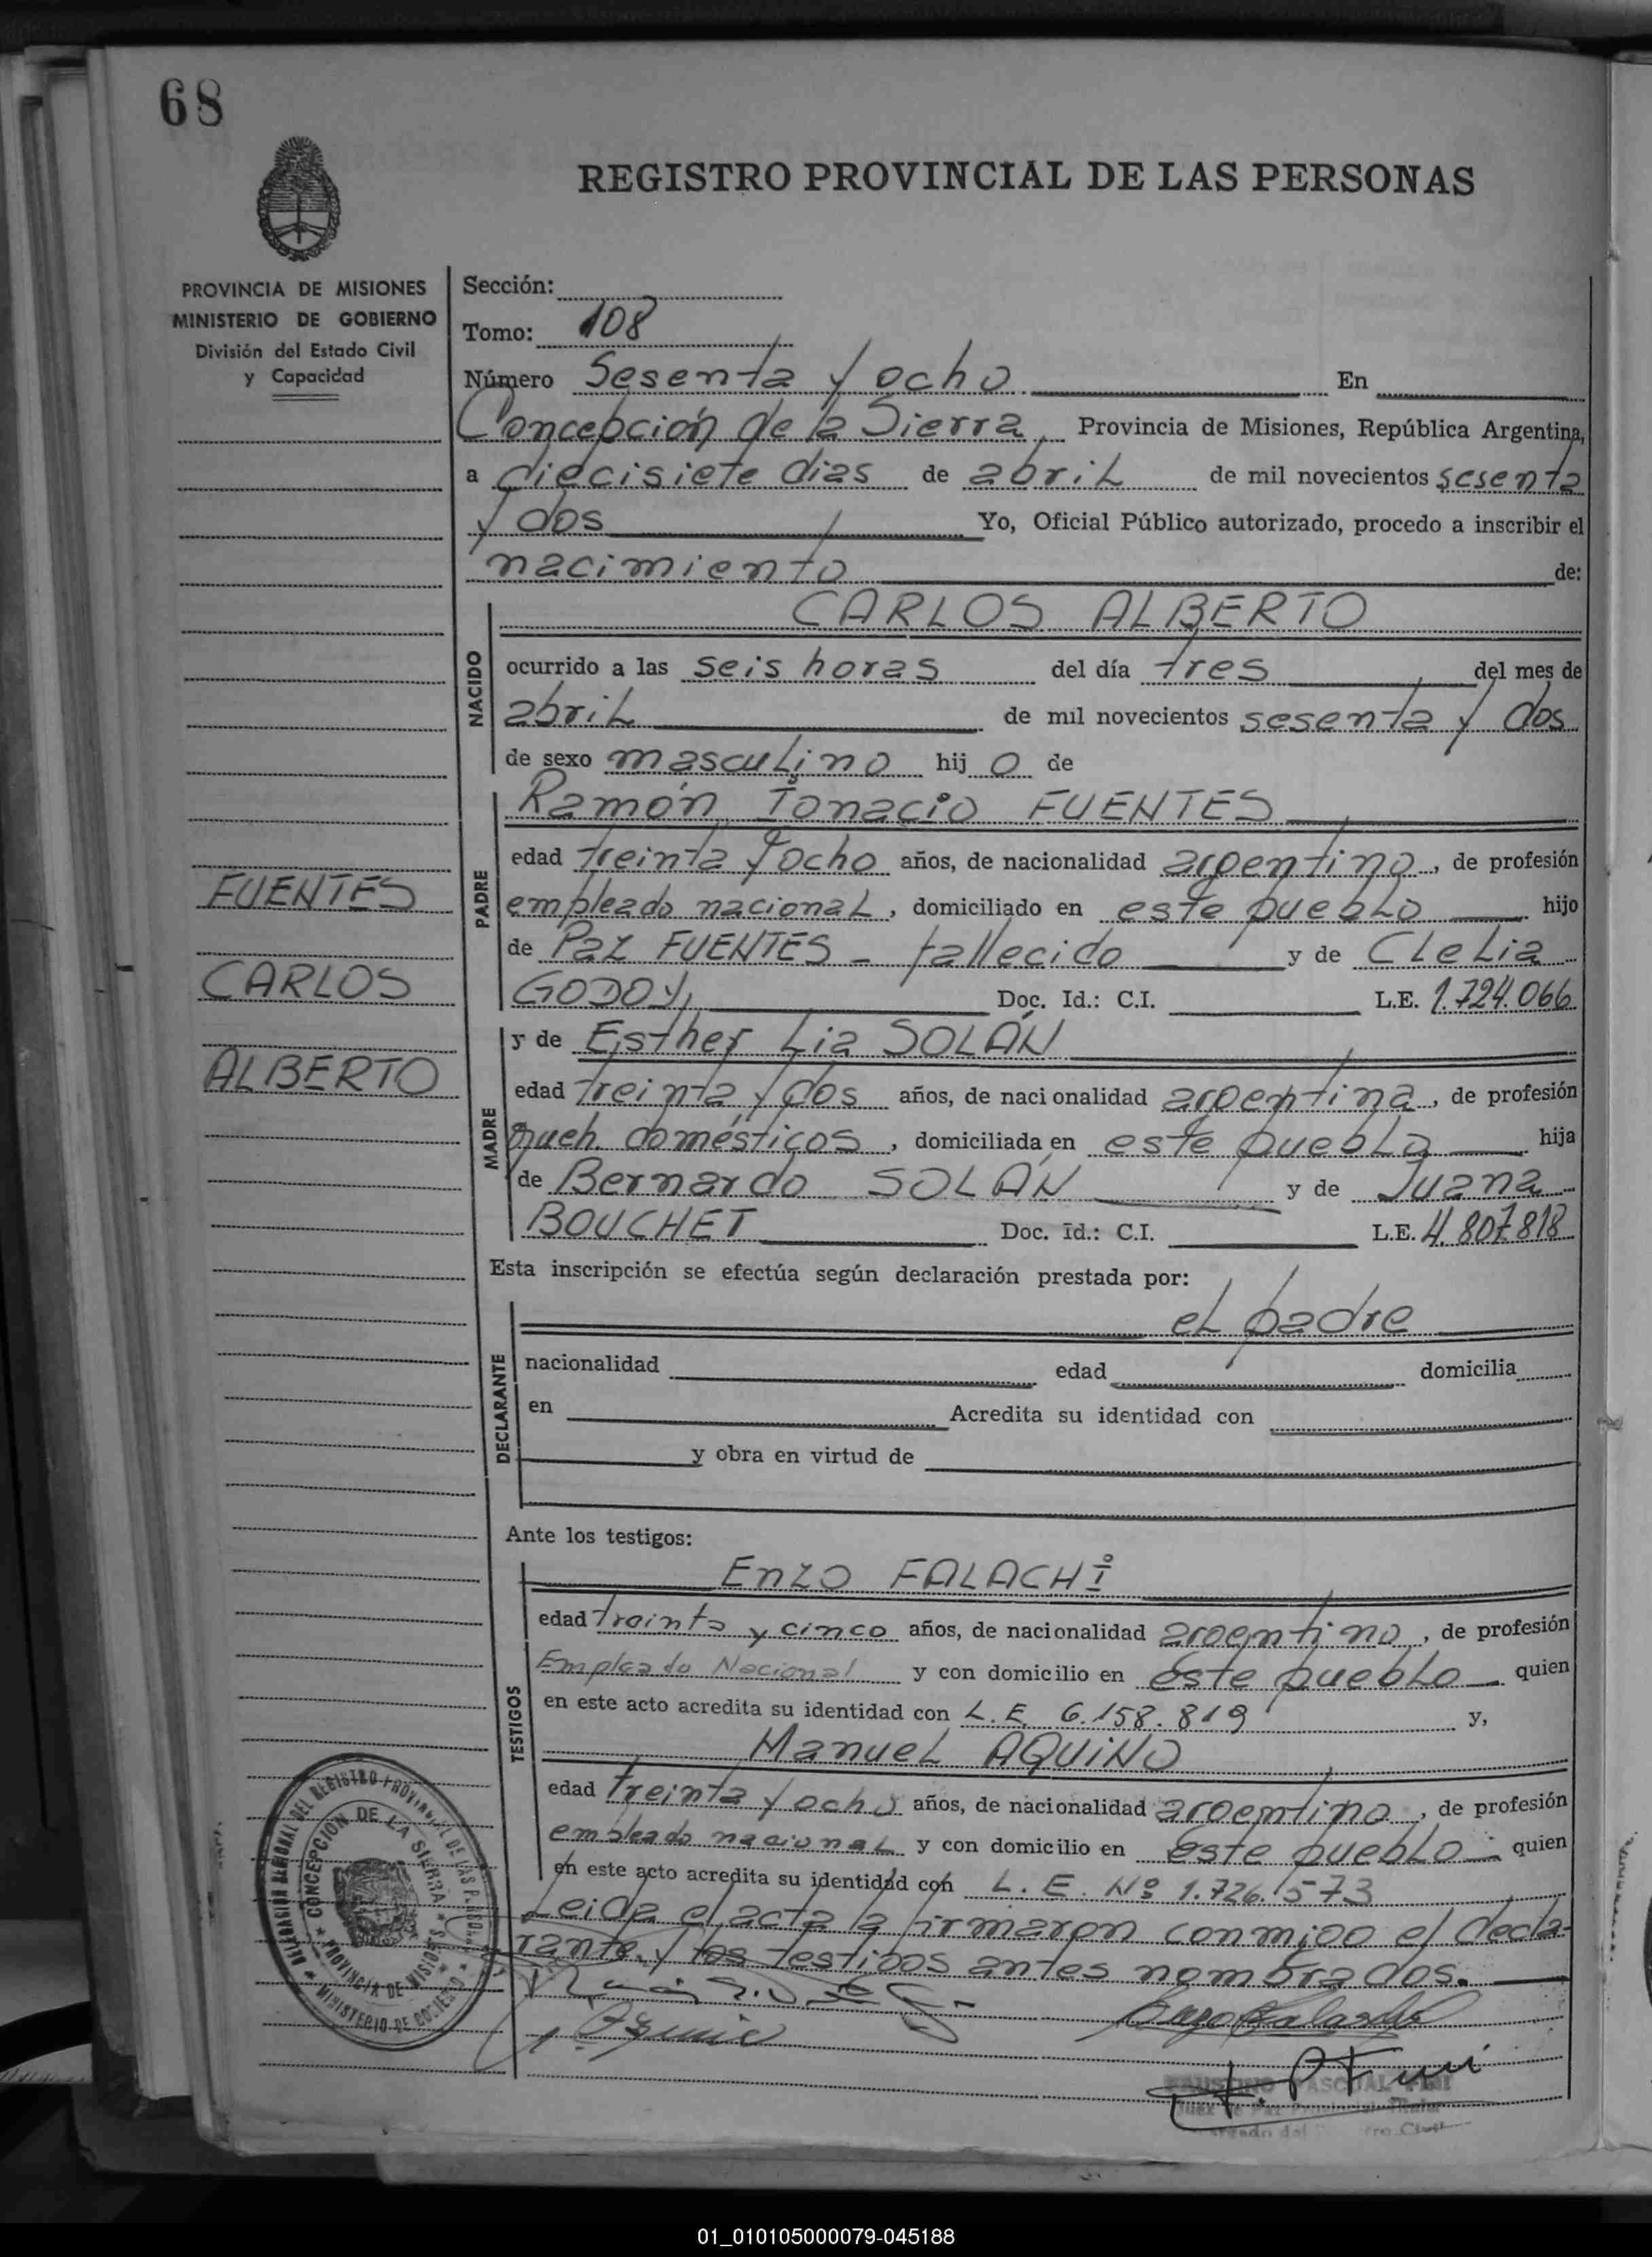 68
REGISTRO PROVINCIAL DE LAS PERSONAS
PROVINCIA DE MISIONES
MINISTERIO DE GOBIERNO
División del Estado Civil
y Capacidad
FUENTES
CARLOS
ALBERTO
Sección:
Tomo: 108
Número Sesenta y ocho En
Concepción de la Sierra, Provincia de Misiones, República Argentina,
a diecisiete dias de abril de mil novecientos sesenta
y dos Yo, Oficial Público autorizado, procedo a inscribir el
nacimiento de:
NACIDO
CARLOS ALBERTO
ocurrido a las seis horas del día tres del mes de
abril de mil novecientos sesenta y dos
de sexo masculino hij o de
PADRE
Ramón Ignacio FUENTES
edad treinta y ocho años, de nacionalidad argentino, de profesión
empleado nacional, domiciliado en este pueblo hijo
de Paz FUENTES - fallecido y de Clelia
GODOY, Doc. Id.: C.I. L.E. 1.724.066
MADRE
y de Esther Lia SOLÁN
edad treinta y dos años, de nacionalidad argentina, de profesión
queh. domésticos, domiciliada en este pueblo hija
de Bernardo SOLÁN y de Juana
BOUCHET Doc. Id.: C.I. L.E. 4.807.818
Esta inscripción se efectúa según declaración prestada por:
DECLARANTE
el padre
nacionalidad edad domicilia
en Acredita su identidad con
y obra en virtud de
Ante los testigos:
TESTIGOS
Enzo FALACHI
edad treinta y cinco años, de nacionalidad argentino, de profesión
Empleado Nacional y con domicilio en este pueblo quien
en este acto acredita su identidad con L.E. 6.158.819 y,
Manuel AQUINO
edad treinta y ocho años, de nacionalidad argentino, de profesión
empleado nacional y con domicilio en este pueblo - quien
en este acto acredita su identidad con L.E. Nº 1.726.573
Leida el acta la firmaron conmigo el decla-
rante y los testigos antes nombrados.
CONCEPCION DE LA SIERRA
PROVINCIA DE MISIONES
MINISTERIO DE GOBIERNO
FAUSTINO PASCUAL
01_010105000079-045188